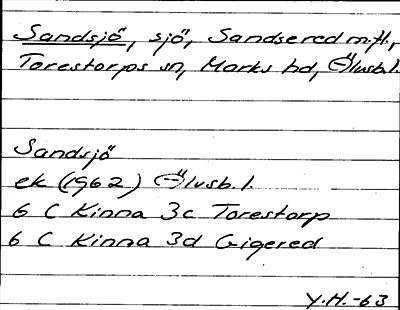 Sandsjö, sjö, Sandsered m.fl.,
Torestorps sn, Marks hd, Älvsb.l.
Sandsjö
ek (1962) Älvsb. l.
6 C Kinna 3c Torestorp
6 C Kinna 3d Gigered
Y.H.-63